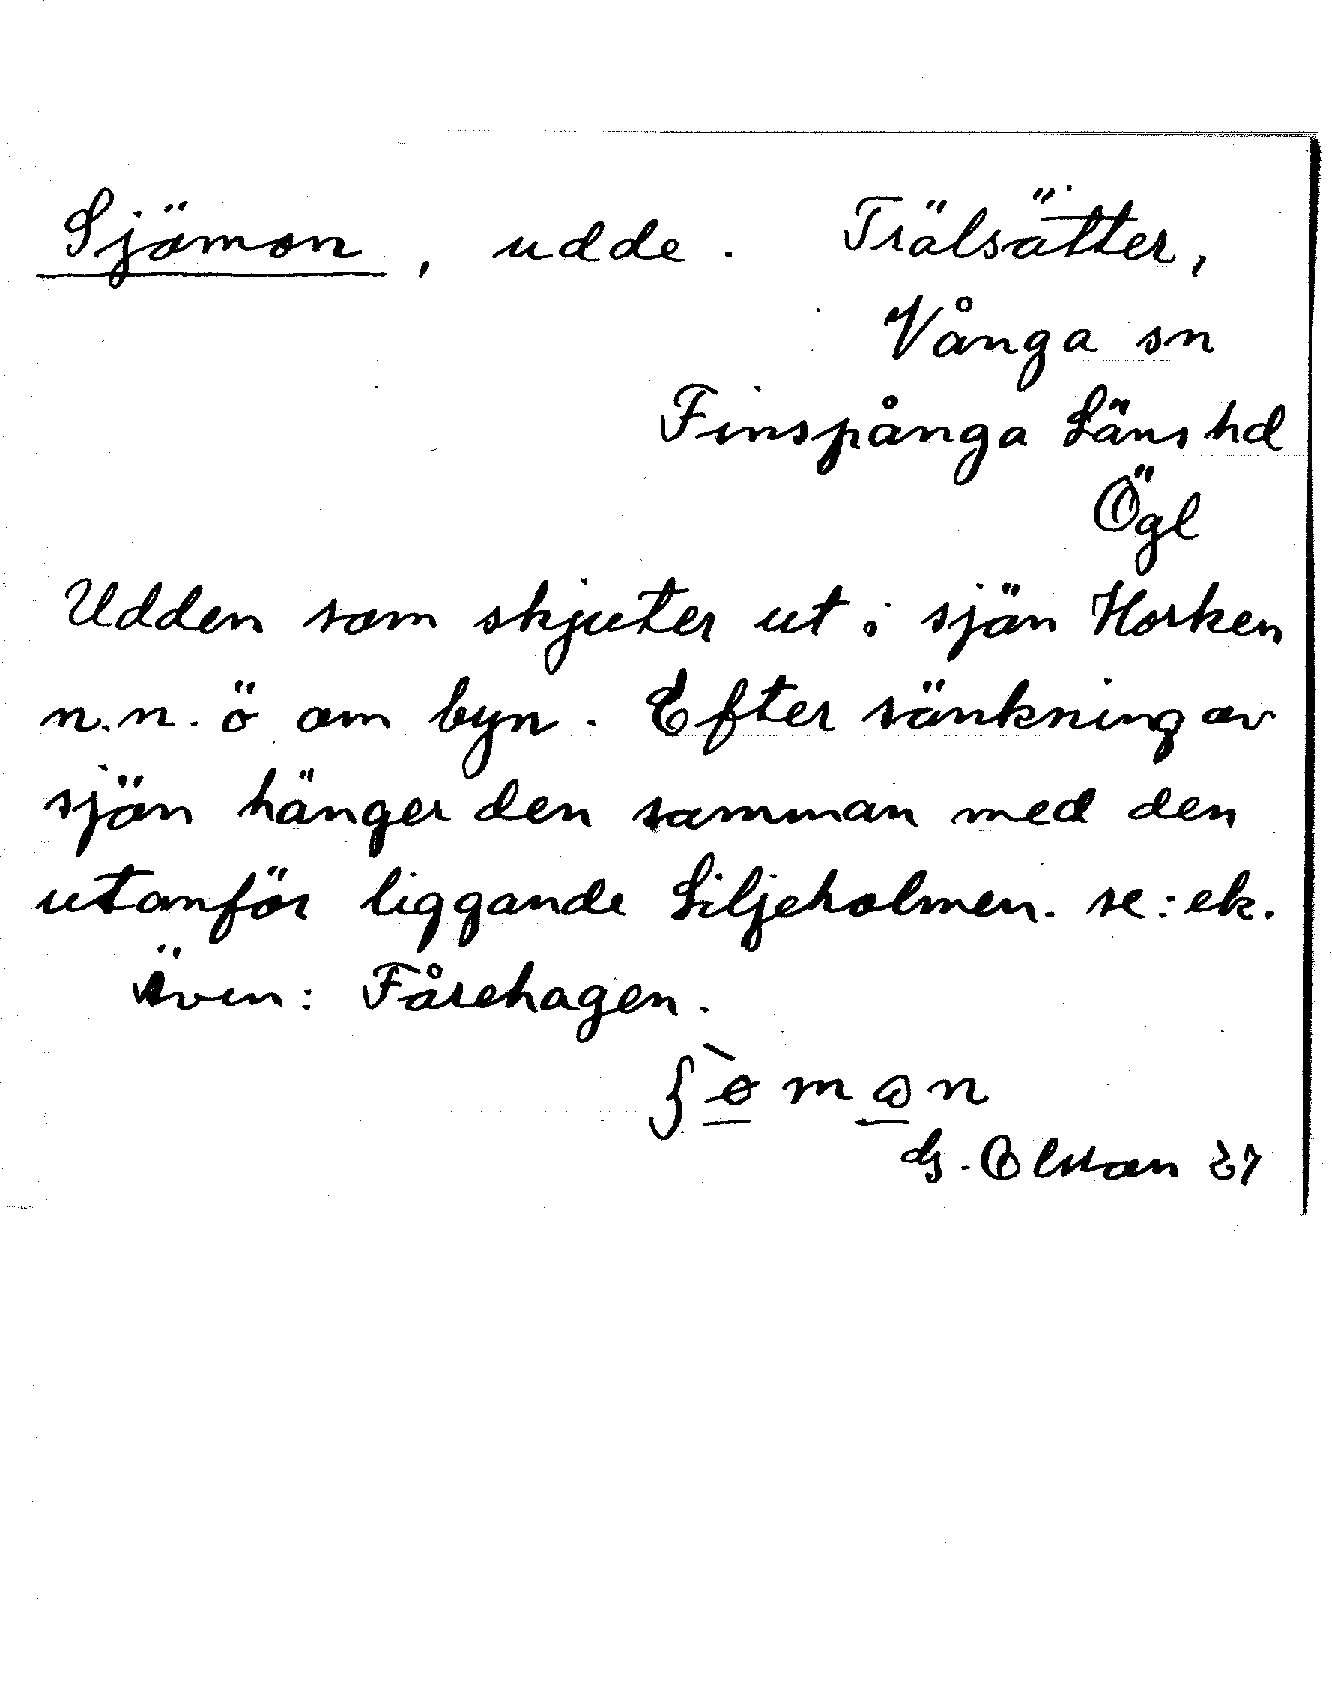 Sjömon, udde. Trälsätter,
Vånga sn
Finspånga Läns hd
Ögl
Udden som skjuter ut i sjön Horken
n.n.ö om byn. Efter sänkning av
sjön hänger den samman med den
utanför liggande Liljeholmen. se: ek.
Även: Fårehagen.
G. Olsson 27